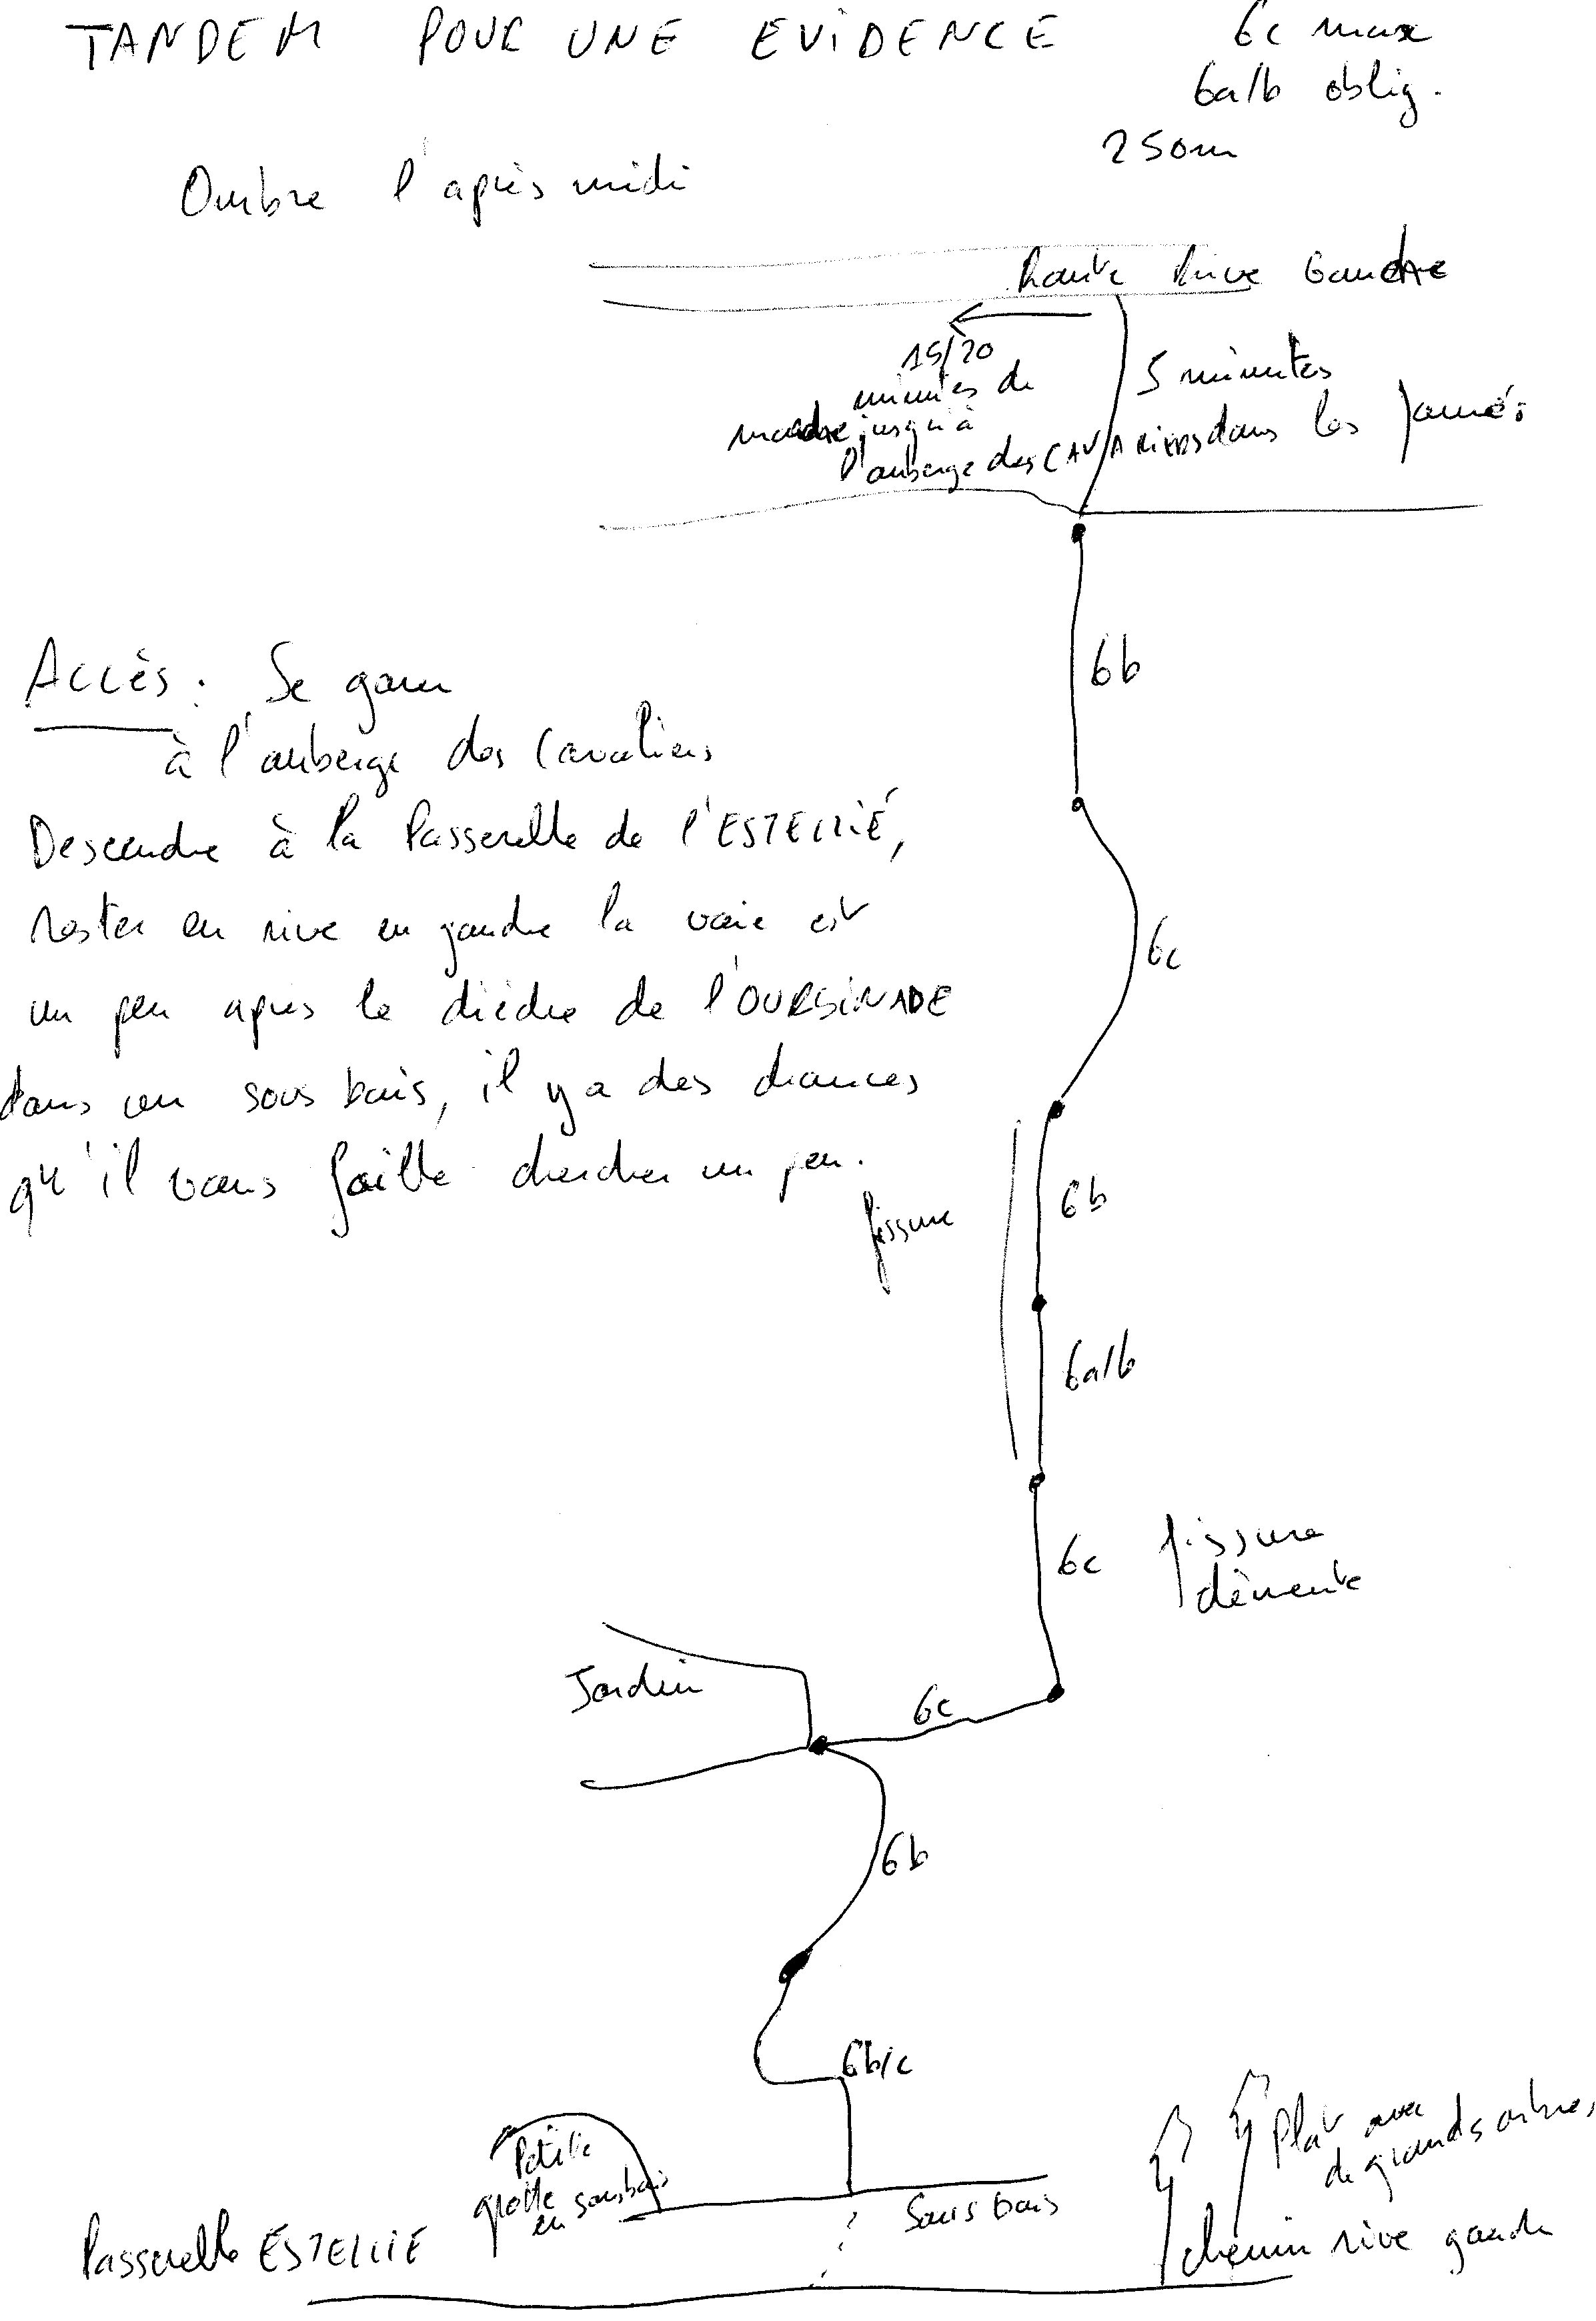 TANDEM POUR UNE EVIDENCE
6c max
6a/b oblig.
250m
Ombre l'après midi
Route Rive Gauche
15/20
minutes de
marche jusqu'à
l'auberge des CAVALIERS
5 minutes
dans les
6b
Accès : Se garer
à l'auberge des Cavaliers
Descendre à la Passerelle de l'ESTELLIÉ,
rester en rive en gauche la voie est
un peu après le dièdre de l'OURSINADE
dans un sous bois, il y a des chances
qu'il vous faille chercher un peu.
6c
fissure
6b
6a/b
6c
fissure
démente
Jardin
6c
6b
6b/c
Petite
grotte
en sous bois
Sous bois
Plat avec
de grands arbres
Passerelle ESTELLIE
chemin rive gauche